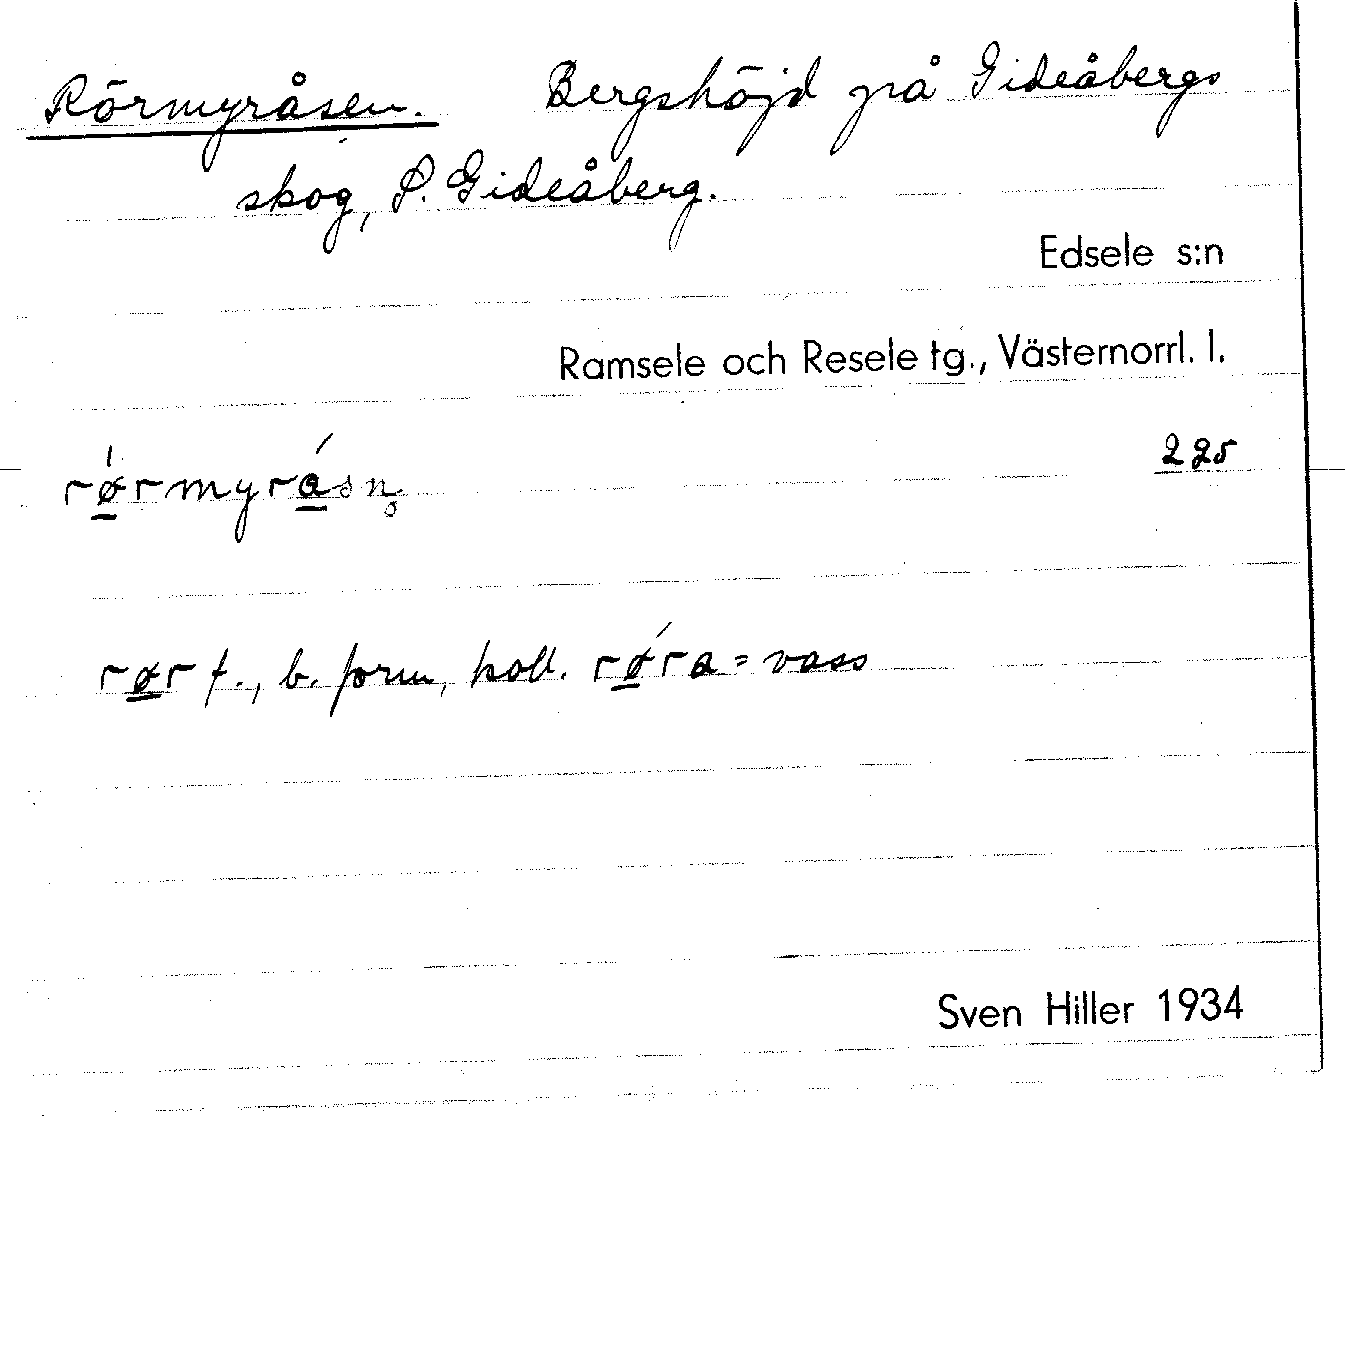 Rörmyråsen. Bergshöjd på Gideåbergs
skog, S. Gideåberg.
Edsele s:n
Ramsele och Resele tg., Västernorrl. l.
225
rǿ̱rmyrá̱sn̥
rø̱r f., b. form, koll. rǿ̱ra = vass
Sven Hiller 1934